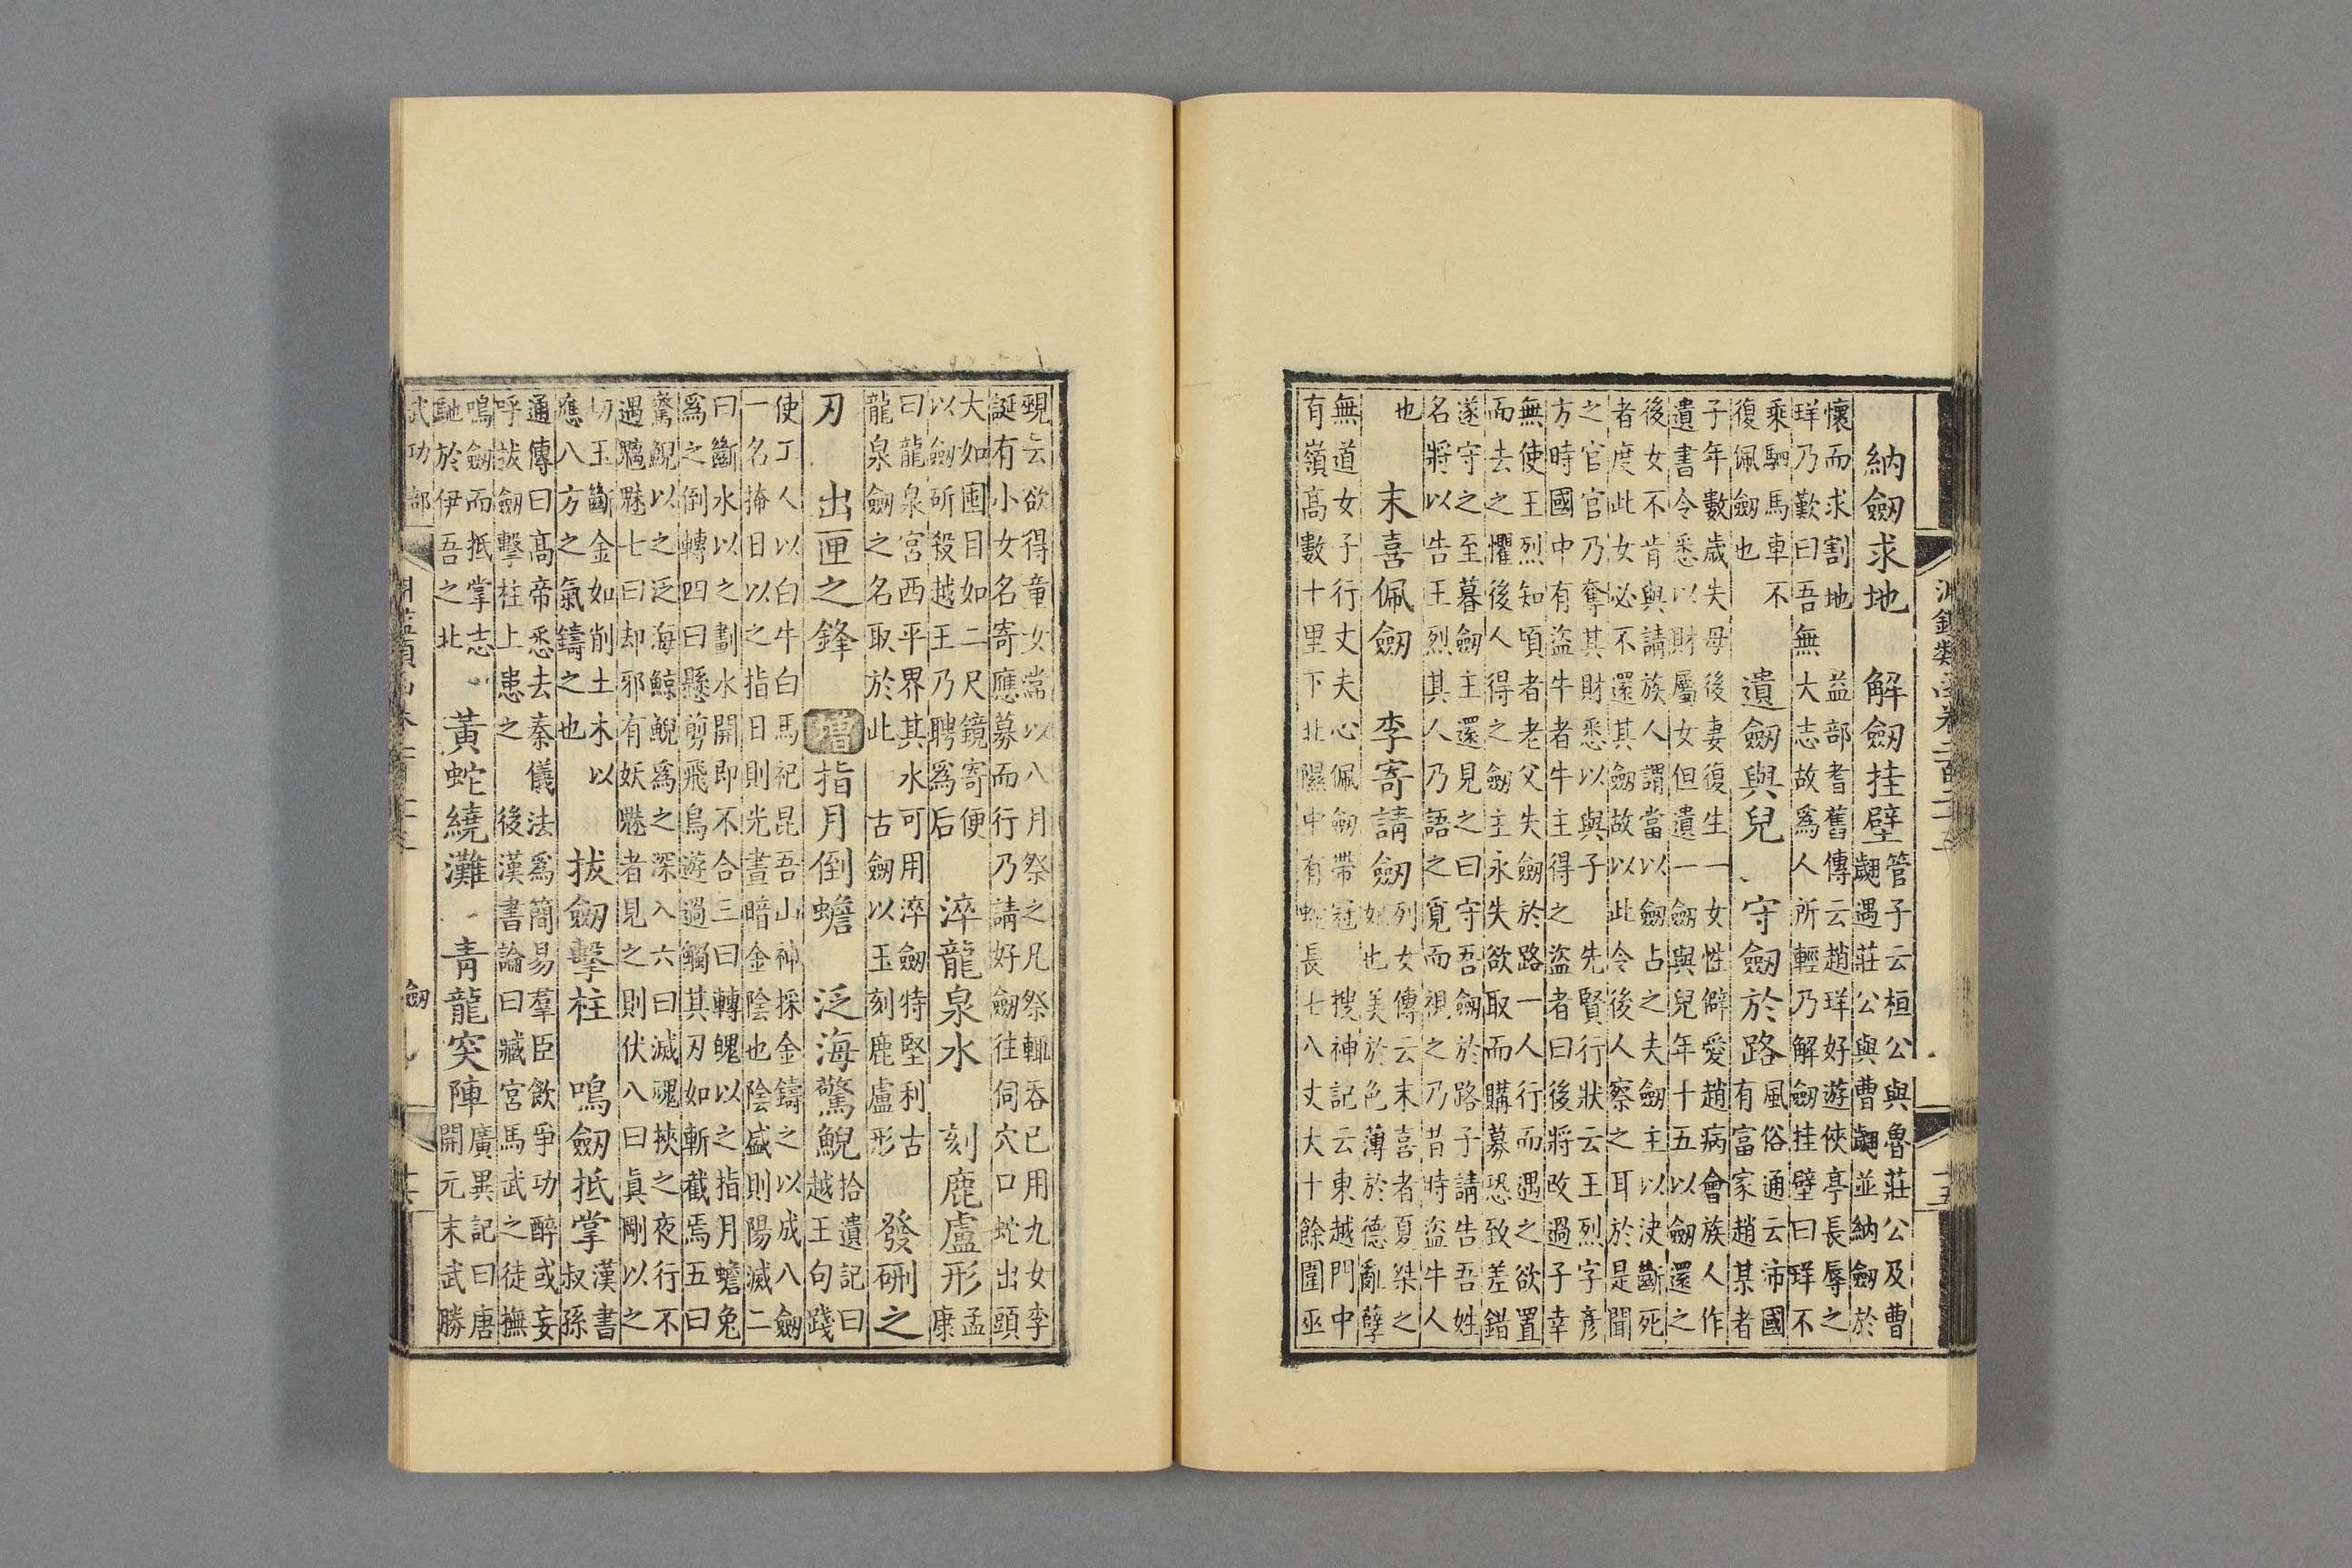 淵鑑類函卷二百二十三
十五
納劒求地　解劒挂壁
管子云桓公與魯莊公及曹
翽遇莊公與曹翽並納劒於
懷而求割地　益部耆舊傳云趙珜好遊俠亭長辱之
珜乃歎曰吾無大志故爲人所輕乃解劒挂壁曰珜不
乘駟馬車不
復佩劒也
遺劒與兒　守劒於路
風俗通云沛國
有富家趙某者
子年數歲失母後妻復生一女性僻愛趙病會族人作
遺書令悉以財屬女但遺一劒與兒年十五以劒還之
後女不肯與請族人謂當以劒占之夫劒主以決斷死
者度此女必不還其劒故以此令後人察之耳於是聞
之官官乃奪其財悉以與子　先賢行狀云王烈字彥
方時國中有盜牛者牛主得之盜者曰後將改過子幸
無使王烈知頃者老父失劒於路一人行而遇之欲置
而去之懼後人得之劒主永失欲取而購募恐致差錯
遂守之至暮劒主還見之曰守吾劒於路子請告吾姓
名將以告王烈其人乃語之覔而視之乃昔時盜牛人
也
末喜佩劒　李寄請劒
列女傳云末喜者夏桀之
妃也美於色薄於德亂孽
無道女子行丈夫心佩劒帶冠　搜神記云東越門中
有嶺高數十里下北隰中有蛇長七八丈大十餘圍巫
覡云欲得童女常以八月祭之凡祭輒吞已用九女李
誕有小女名寄應募而行乃請好劒往伺穴口蛇出頭
大如囷目如二尺鏡寄便
以劒斫殺越王乃聘爲后
淬龍泉水　刻鹿盧形
孟
康
曰龍泉宮西平界其水可用淬劒特堅利古
龍泉劒之名取於此　古劒以玉刻鹿盧形
發硎之
刃　出匣之鋒　增　指月倒蟾　泛海驚鯢
拾遺記曰
越王句踐
使工人以白牛白馬祀昆吾山神採金鑄之以成八劒
一名掩日以之指日則光晝暗金陰也陰盛則陽滅二
曰斷水以之劃水開即不合三曰轉魄以之指月蟾兔
爲之倒轉四曰懸剪飛鳥遊過觸其刃如斬截焉五曰
驚鯢以之泛海鯨鯢爲之深入六曰滅魂挾之夜行不
遇魑魅七曰却邪有妖魅者見之則伏八曰眞剛以之
切玉斷金如削土木以
應八方之氣鑄之也
拔劒擊柱　鳴劒抵掌
漢書
叔孫
通傳曰高帝悉去秦儀法爲簡易羣臣飲爭功醉或妄
呼拔劒擊柱上患之　後漢書論曰臧宮馬武之徒撫
鳴劒而抵掌志
馳於伊吾之北
黃蛇繞灘　青龍突陣
廣異記曰唐
開元末武勝
武功部
劒